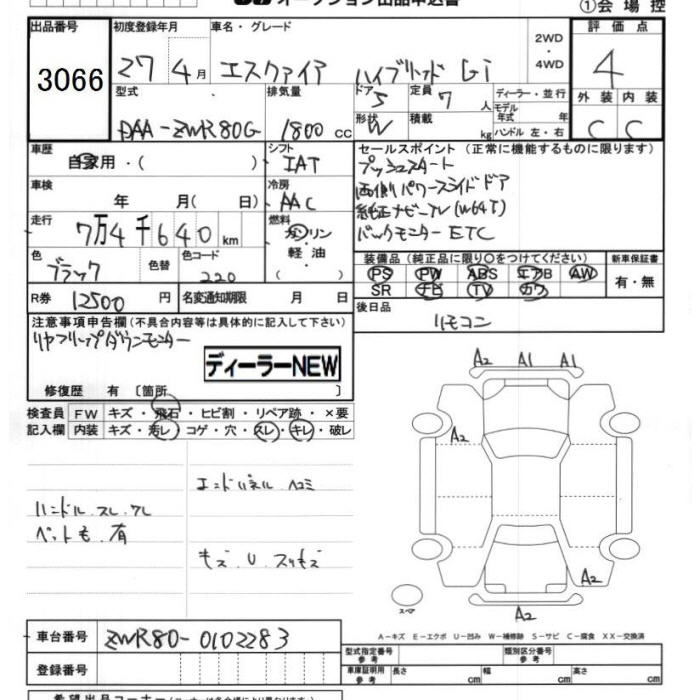 オークション出品申込書
①会場控
出品番号 3066
初度登録年月 27 4月
車名・グレード エスクァイア ハイブリッド Gi
2WD・4WD
評価点 4
外装 C 内装 C
型式 DAA-ZWR80G
排気量 1800cc
ドア 5 形状 W
定員 7人 積載 kg
ディーラー・並行
モデル年式 年
ハンドル 左・右
車歴 自家用・( )
シフト IAT
車検 年 月( 日)
冷房 AAC
走行 7万4千640km
燃料 ガソリン 軽油・( )
色 ブラック 色替
色コード 220
R券 12500円
名変通知期限 月 日
セールスポイント(正常に機能するものに限ります)
プッシュスタート
両側パワースライドドア
純正ナビ-TV(W64T)
バックモニター ETC
装備品(純正品に限り○をつけてください)
PS PW ABS エアB AW
SR ナビ TV カワ
新車保証書 有・無
後日品 リモコン
注意事項申告欄(不具合内容等は具体的に記入して下さい)
リヤフリップダウンモニター
ディーラーNEW
修復歴 有〔箇所 〕
検査員記入欄
FW キズ・飛石・ヒビ割・リペア跡・×要
内装 キズ・汚レ・コゲ・穴・スレ・キレ・破レ
エンドパネル ヘコミ
ハンドル スレ
ペット毛 有
キズ U スリキズ
A2 A1 A1
A2
A2
A2
スペア
A-キズ E-エクボ U-凹み W-補修跡 S-サビ C-腐食 XX-交換済
車台番号 ZWR80-0102283
登録番号
型式指定番号 参考
類別区分番号 参考
車庫証明用 参考 長さ cm 幅 cm 高さ cm
希望出品コーナー